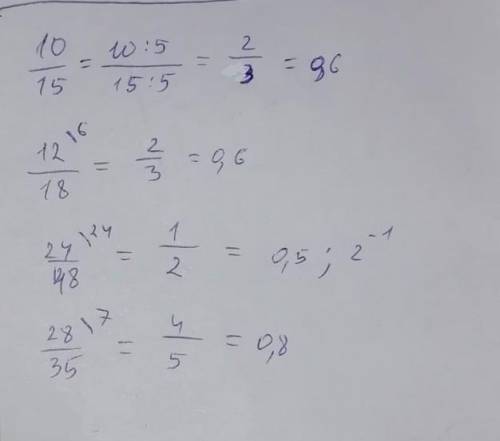 10/15 = 10:5/15:5 = 2/3 = 0,6
12\6/18 = 2/3 = 0,6
24\24/48 = 1/2 = 0,5 ; 2⁻¹
28\7/35 = 4/5 = 0,8